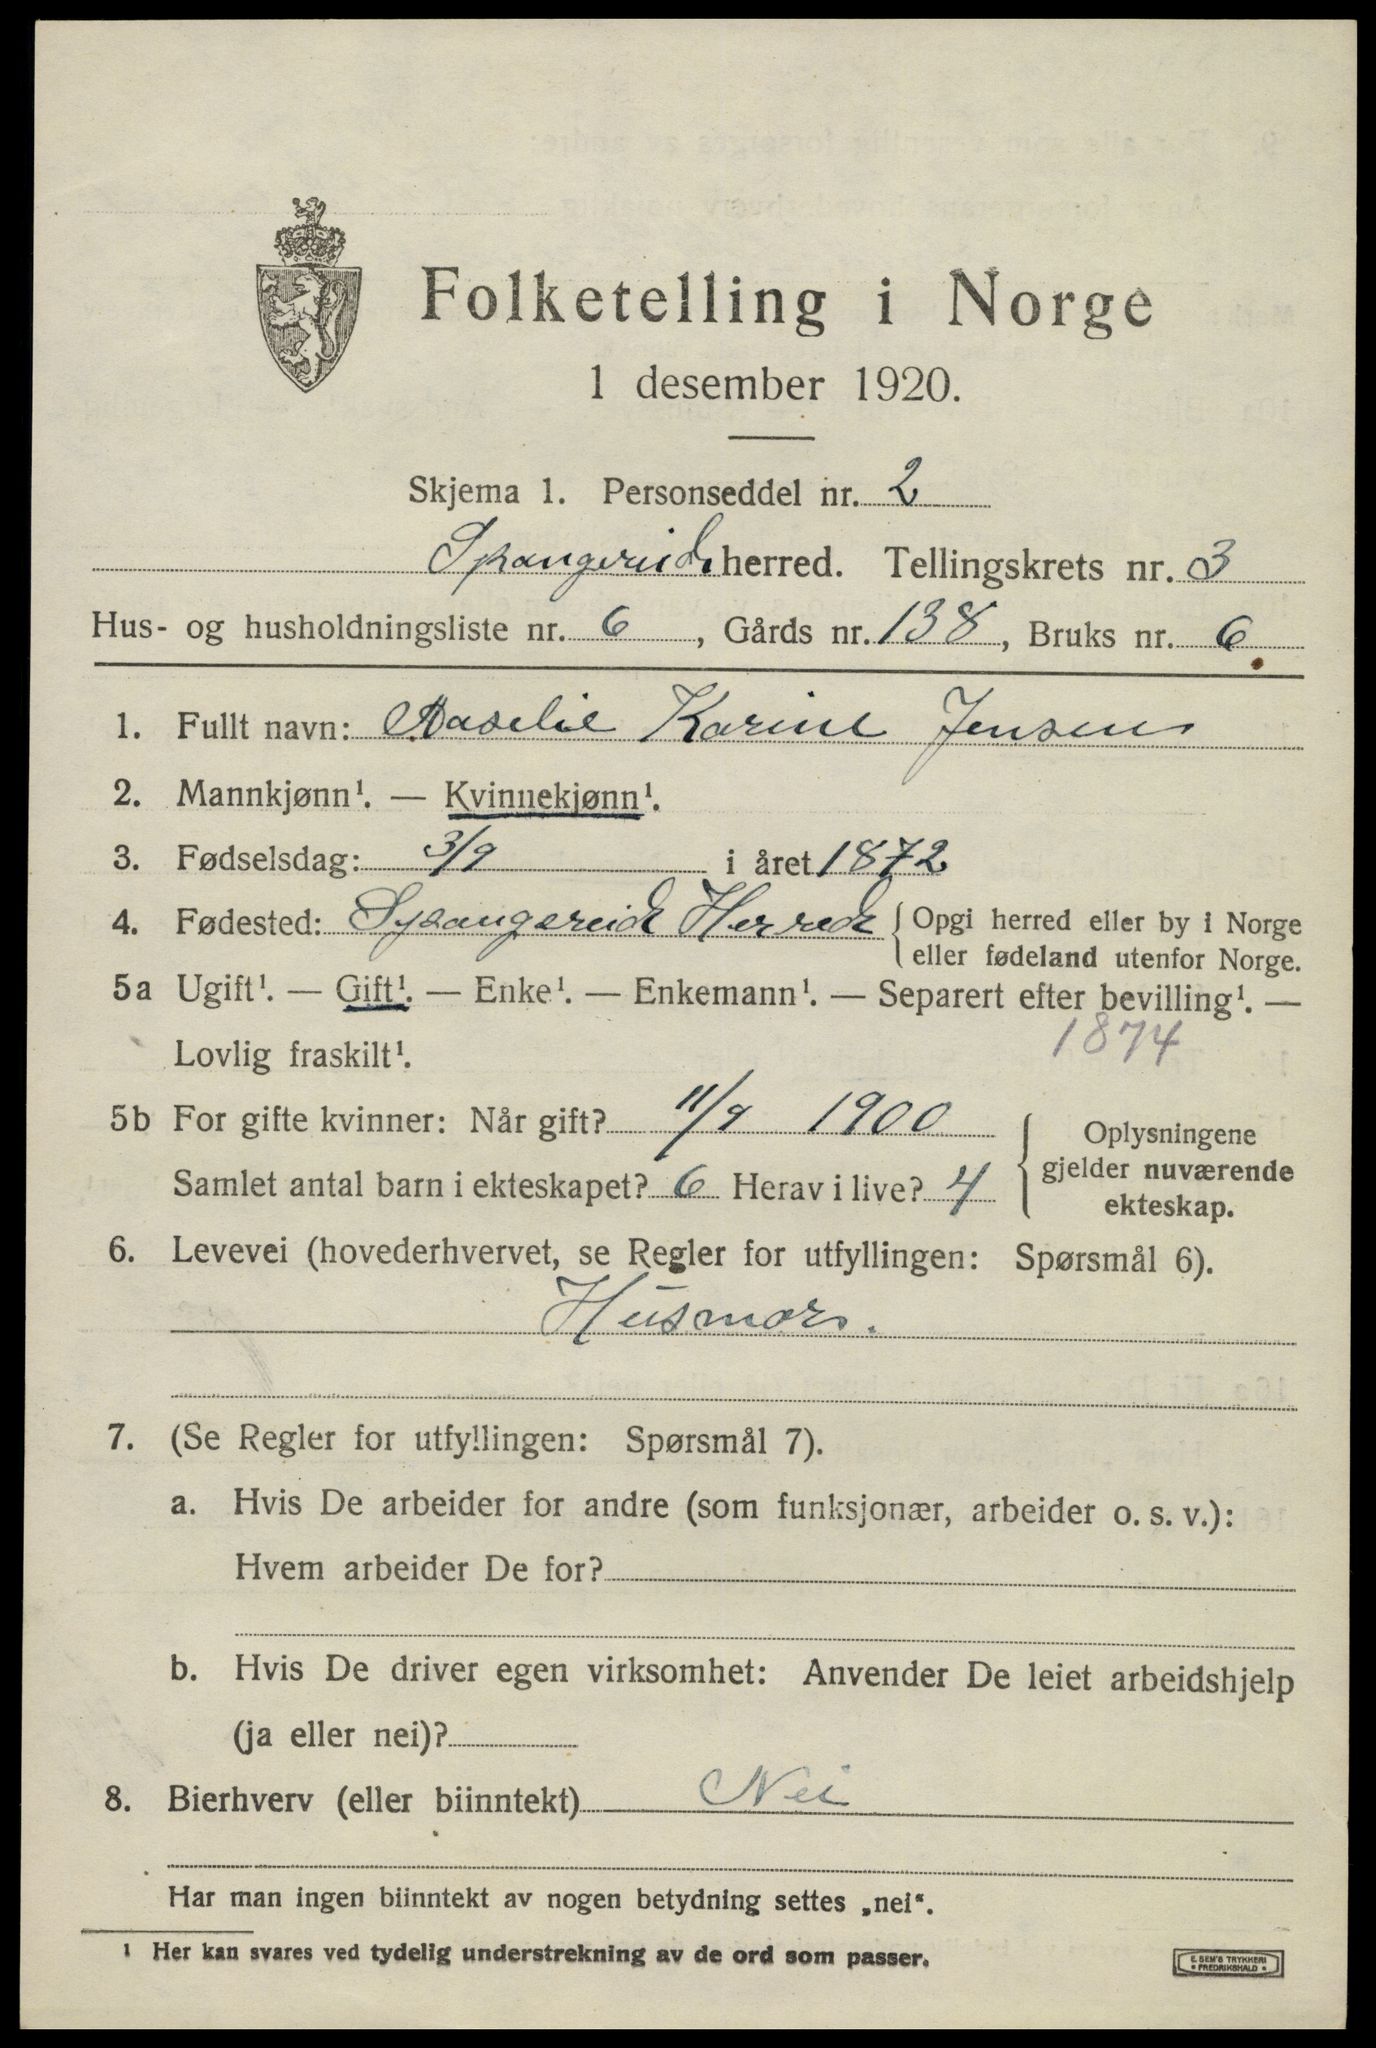 Folketelling i Norge
1 desember 1920.
Skjema 1. Personseddel nr. 2
Spangereid herred. Tellingskrets nr. 3
Hus- og husholdningsliste nr. 6, Gårds nr. 138, Bruks nr. 6
1. Fullt navn: Karine Jensen
2. Mannkjønn¹. — Kvinnekjønn¹.
3. Fødselsdag: 3/9 i året 1872
4. Fødested: Spangereid Herred { Opgi herred eller by i Norge
eller fødeland utenfor Norge.
5a Ugift¹. — Gift¹. — Enke¹. — Enkemann¹. — Separert efter bevilling¹. —
1874
Lovlig fraskilt¹.
5b For gifte kvinner: Når gift? 11/9 1900
Samlet antal barn i ekteskapet? 6 Herav i live? 4
{ Oplysningene
gjelder nuværende
ekteskap.
6. Levevei (hovederhvervet, se Regler for utfyllingen: Spørsmål 6).
Husmor.
7. (Se Regler for utfyllingen: Spørsmål 7).
a. Hvis De arbeider for andre (som funksjonær, arbeider o. s. v.):
Hvem arbeider De for?
b. Hvis De driver egen virksomhet: Anvender De leiet arbeidshjelp
(ja eller nei)?
8. Bierhverv (eller biinntekt) Nei
Har man ingen biinntekt av nogen betydning settes „nei“.
¹ Her kan svares ved tydelig understrekning av de ord som passer.
E. SEM'S TRYKKERI
• FREDRIKSHALD •